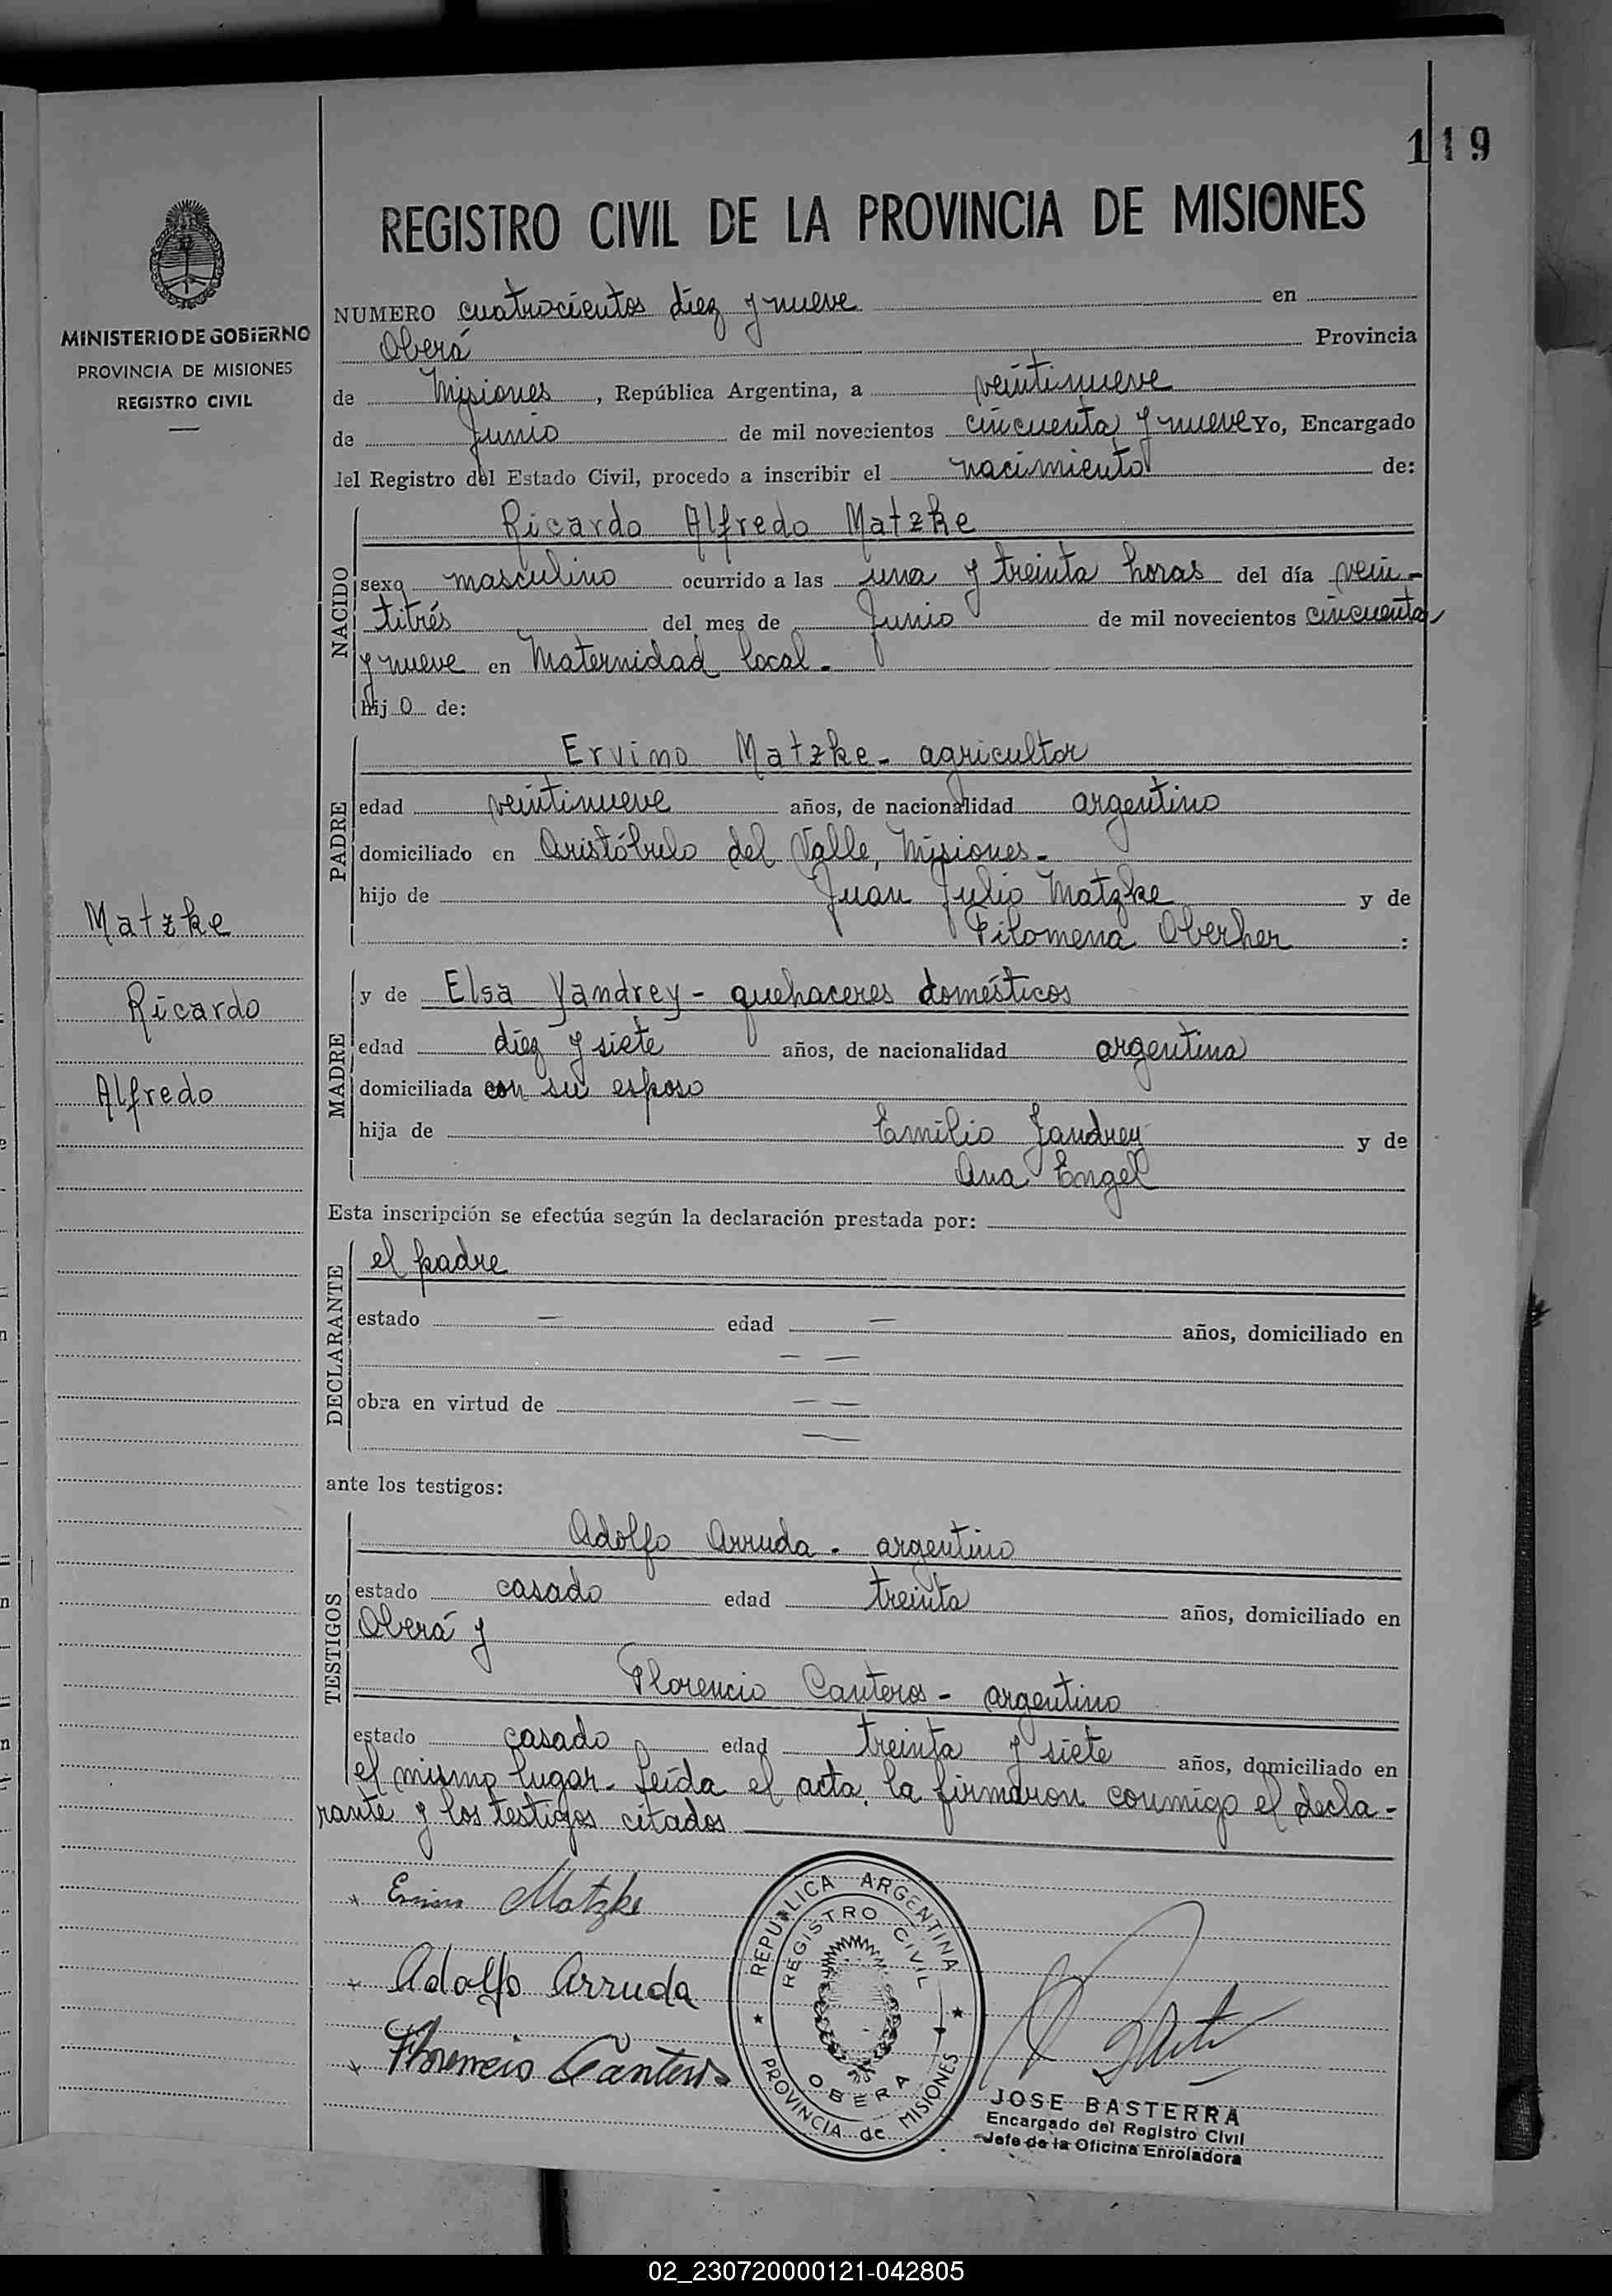 119
REGISTRO CIVIL DE LA PROVINCIA DE MISIONES
MINISTERIO DE GOBIERNO
PROVINCIA DE MISIONES
REGISTRO CIVIL
Matzke
Ricardo
Alfredo
NUMERO cuatrocientos diez y nueve en
Oberá Provincia
de Misiones, República Argentina, a veintinueve
de Junio de mil novecientos cincuenta y nueve Yo, Encargado
del Registro del Estado Civil, procedo a inscribir el nacimiento de:
NACIDO
Ricardo Alfredo Matzke
sexo masculino ocurrido a las una y treinta horas del día vein-
titrés del mes de Junio de mil novecientos cincuenta
y nueve en Maternidad local.-
hijo de:
PADRE
Ervino Matzke - agricultor
edad veintinueve años, de nacionalidad argentino
domiciliado en Aristóbulo del Valle, Misiones.-
hijo de Juan Julio Matzke y de
Filomena Oberher :
MADRE
y de Elsa Yandrey - quehaceres domésticos
edad diez y siete años, de nacionalidad argentina
domiciliada con su esposo
hija de Emilio Jandrey y de
Ana Engel
Esta inscripción se efectúa según la declaración prestada por:
DECLARANTE
el padre
estado — edad — años, domiciliado en
— —
obra en virtud de — —
—
ante los testigos:
TESTIGOS
Adolfo Arruda - argentino
estado casado edad treinta años, domiciliado en
Oberá y
Florencio Canteros - argentino
estado casado edad treinta y siete años, domiciliado en
el mismo lugar. Leída el acta, la firmaron conmigo el decla-
rante y los testigos citados
x Ervino Matzke
x Adolfo Arruda
x Florencio Canteros
REPUBLICA ARGENTINA
REGISTRO CIVIL
OBERA
PROVINCIA de MISIONES
JOSE BASTERRA
Encargado del Registro Civil
Jefe de la Oficina Enroladora
02_230720000121-042805